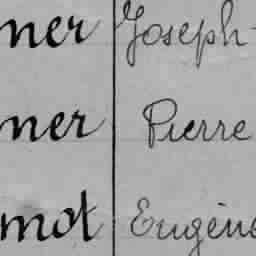 ner Joseph
ner Pierre
mot Eugène